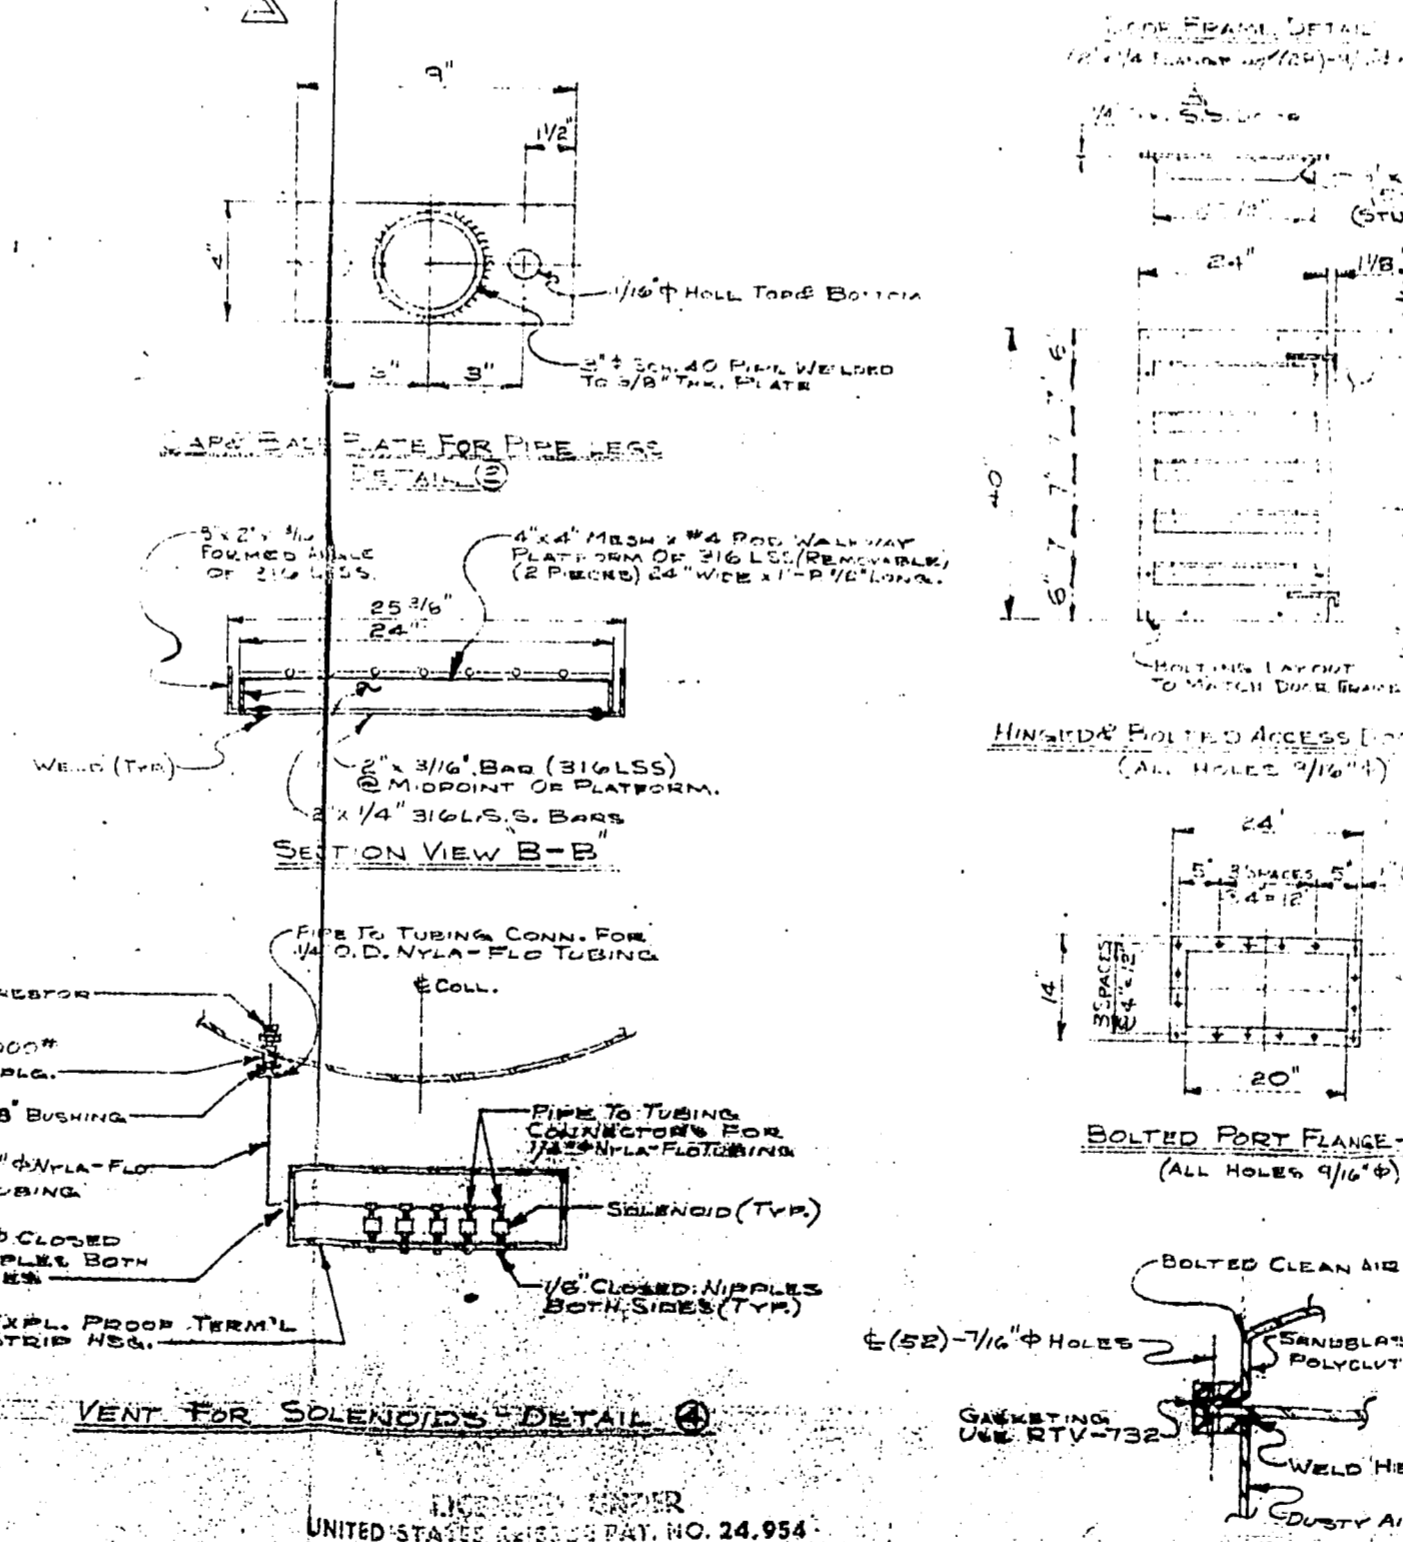 9"
1 1/2"
4"
1/16" ϕ HOLL TOP & BOTTOM
3" ϕ SCH. 40 PIPE WELDED
TO 3/8" THK. PLATE
3"
3"
CAP & BASE PLATE FOR PIPE LEGS
DETAIL
FORMED ANGLE
OF 316 LSS.
4"x4" MESH x #4 ROD WALKWAY
PLATFORM OF 316 LSS (REMOVABLE)
(2 PIECES) 24" WIDE x
25 3/8"
24"
WELD (TYP.)
2" x 3/16" BAR (316LSS)
@ MIDPOINT OF PLATFORM.
2" x 1/4" 316L.S.S. BARS
SECTION VIEW "B-B"
PIPE TO TUBING CONN. FOR
1/4 O.D. NYLA-FLO TUBING
℄ COLL.
RESTOR
000#
PLG.
8" BUSHING
" ϕ NYLA-FLO
UBING
CLOSED
PLES BOTH
PIPE TO TUBING
CONNECTORS FOR
1/4" ϕ NYLA-FLO TUBING
SOLENOID (TYP.)
1/8" CLOSED NIPPLES
BOTH SIDES (TYP.)
XPL. PROOF TERM'L
STRIP HSG.
VENT FOR SOLENOIDS - DETAIL 4
LICENSED UNDER
UNITED STATES PAT. NO. 24,954
DOOR FRAME DETAIL
(STU
24"
1 1/8"
40
6"
7"
7
7"
7
6"
BOLTING LAYOUT
TO MATCH DOOR FRAME
HINGED & BOLTED ACCESS
(ALL HOLES 9/16" ϕ)
24"
5" 3 SPACES 5"
@ 4 = 12"
14"
3 SPACES
@ 4" = 12"
20"
BOLTED PORT FLANGE-
(ALL HOLES 9/16" ϕ)
BOLTED CLEAN AIR
℄ (52) - 7/16" ϕ HOLES
SANDBLAS
POLYCLUT
GASKETING
USE RTV-732
WELD HE
DUSTY AI